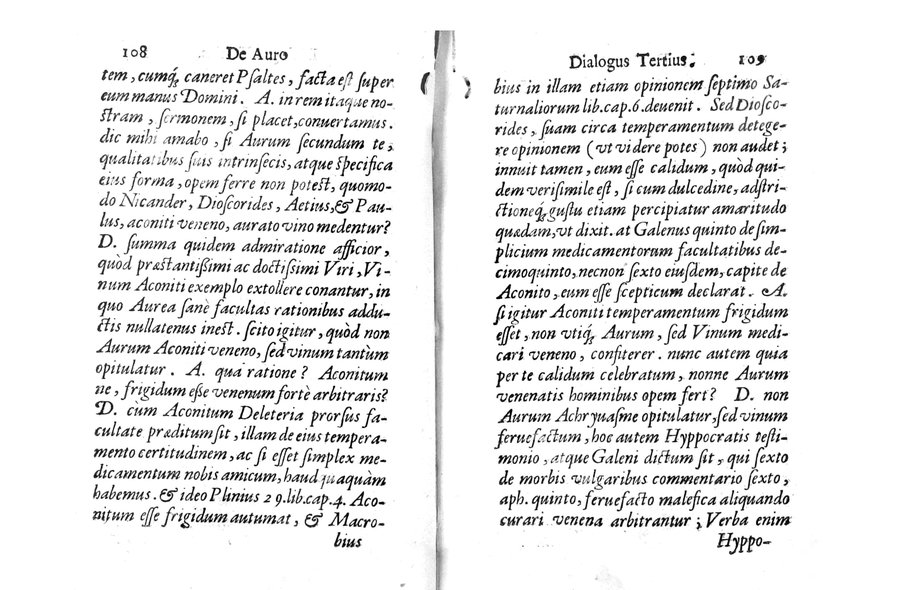 108 De Auro
tem, cumq́; caneret Pſaltes, facta eſt ſuper
eum manus Domini. A. in rem itaque no-
ſtram, ſermonem, ſi placet, conuertamus.
dic mihi amabo, ſi Aurum ſecundum te,
qualitatibus ſuis intrinſecis, atque ſpecifica
eius forma, opem ferre non poteſt, quomo-
do Nicander, Dioſcorides, Aetius, & Pau-
lus, aconiti veneno, aurato vino medentur?
D. ſumma quidem admiratione afficior,
quòd præſtantiſſimi ac doctiſſimi Viri, Vi-
num Aconiti exemplo extollere conantur, in
quo Aurea ſanè facultas rationibus addu-
ctis nullatenus ineſt. ſcito igitur, quòd non
Aurum Aconiti veneno, ſed vinum tantùm
opitulatur. A. qua ratione? Aconitum
ne, frigidum eſſe venenum fortè arbitraris?
D. cùm Aconitum Deleteria prorſus fa-
cultate præditum ſit, illam de eius tempera-
mento certitudinem, ac ſi eſſet ſimplex me-
dicamentum nobis amicum, haud quaquàm
habemus. & ideo Plinius 29. lib. cap. 4. Aco-
nitum eſſe frigidum autumat, & Macro-
bius
Dialogus Tertius. 109
bius in illam etiam opinionem ſeptimo Sa-
turnaliorum lib. cap. 6. deuenit. Sed Dioſco-
rides, ſuam circa temperamentum detege-
re opinionem (vt videre potes) non audet;
innuit tamen, eum eſſe calidum, quòd qui-
dem veriſimile eſt, ſi cum dulcedine, adſtri-
ctioneq́; guſtu etiam percipiatur amaritudo
quædam, vt dixit. at Galenus quinto de ſim-
plicium medicamentorum facultatibus de-
cimoquinto, necnon ſexto eiuſdem, capite de
Aconito, eum eſſe ſcepticum declarat. A.
ſi igitur Aconiti temperamentum frigidum
eſſet, non vtiq́; Aurum, ſed Vinum medi-
cari veneno, confiterer. nunc autem quia
per te calidum celebratum, nonne Aurum
venenatis hominibus opem fert? D. non
Aurum Achryuaſme opitulatur, ſed vinum
feruefactum, hoc autem Hyppocratis teſti-
monio, atque Galeni dictum ſit, qui ſexto
de morbis vulgaribus commentario ſexto,
aph. quinto, feruefacto malefica aliquando
curari venena arbitrantur; Verba enim
Hyppo-